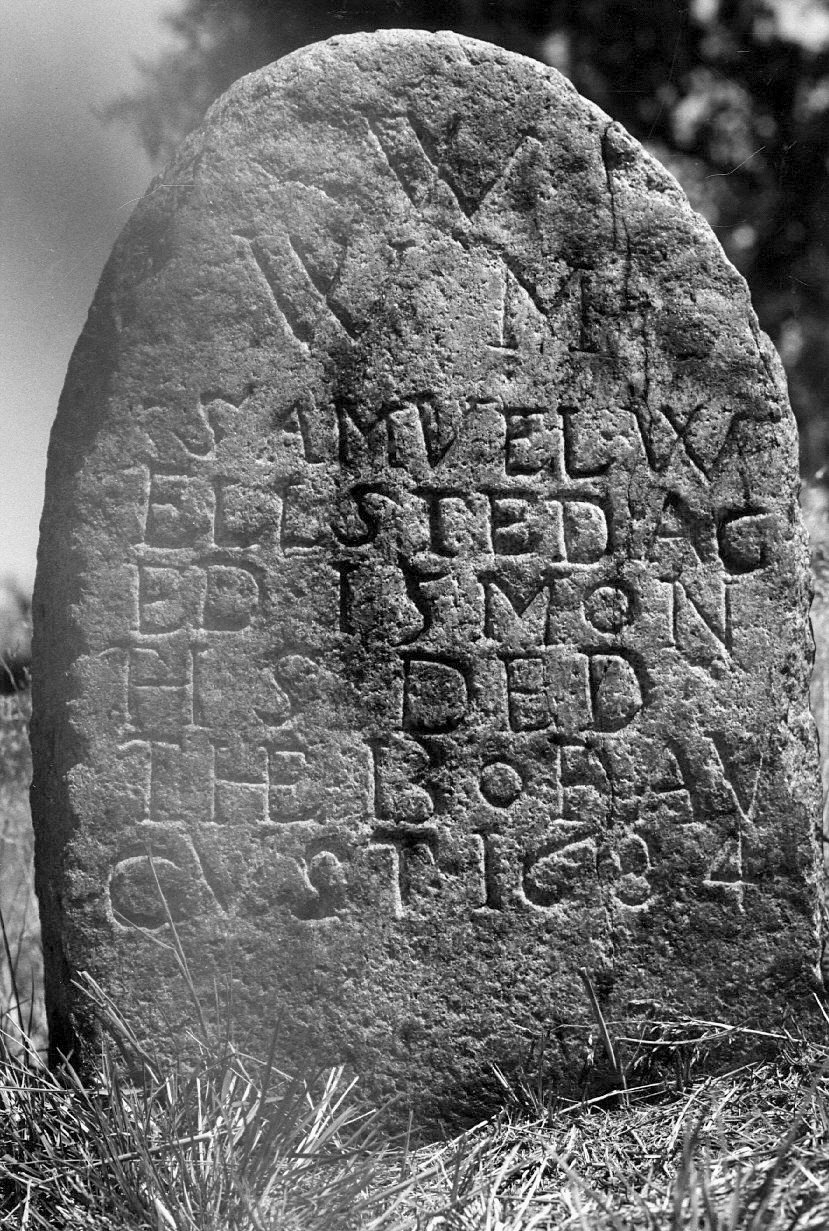 W
V M
SAMVEL W
ELLSTED AG
ED 15 MON
THS DED
THE 8 OF AV
GVST 1684